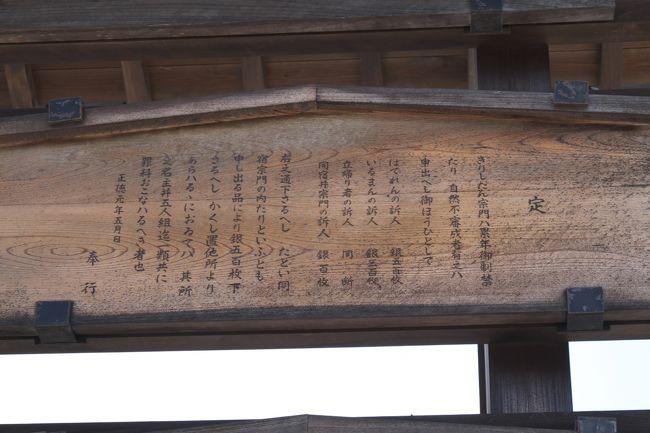 定
きりしたん宗門ハ累年御制禁
たり 自然不審成者有之ハ
申出へし 御ほうびとして
はてれんの訴人 銀五百枚
いるまんの訴人 銀三百枚
立帰り者の訴人 同断
同宿并宗門の訴人 銀百枚
右之通下さるへし たとひ同
宿宗門の内たりといふとも
申し出る品により銀五百枚下
さるへし かくし置他所より
あらハるゝにおゐてハ 其所
之名主并五人組迄一類共に
罪科おこなハるへき者也
正徳元年五月日
奉行